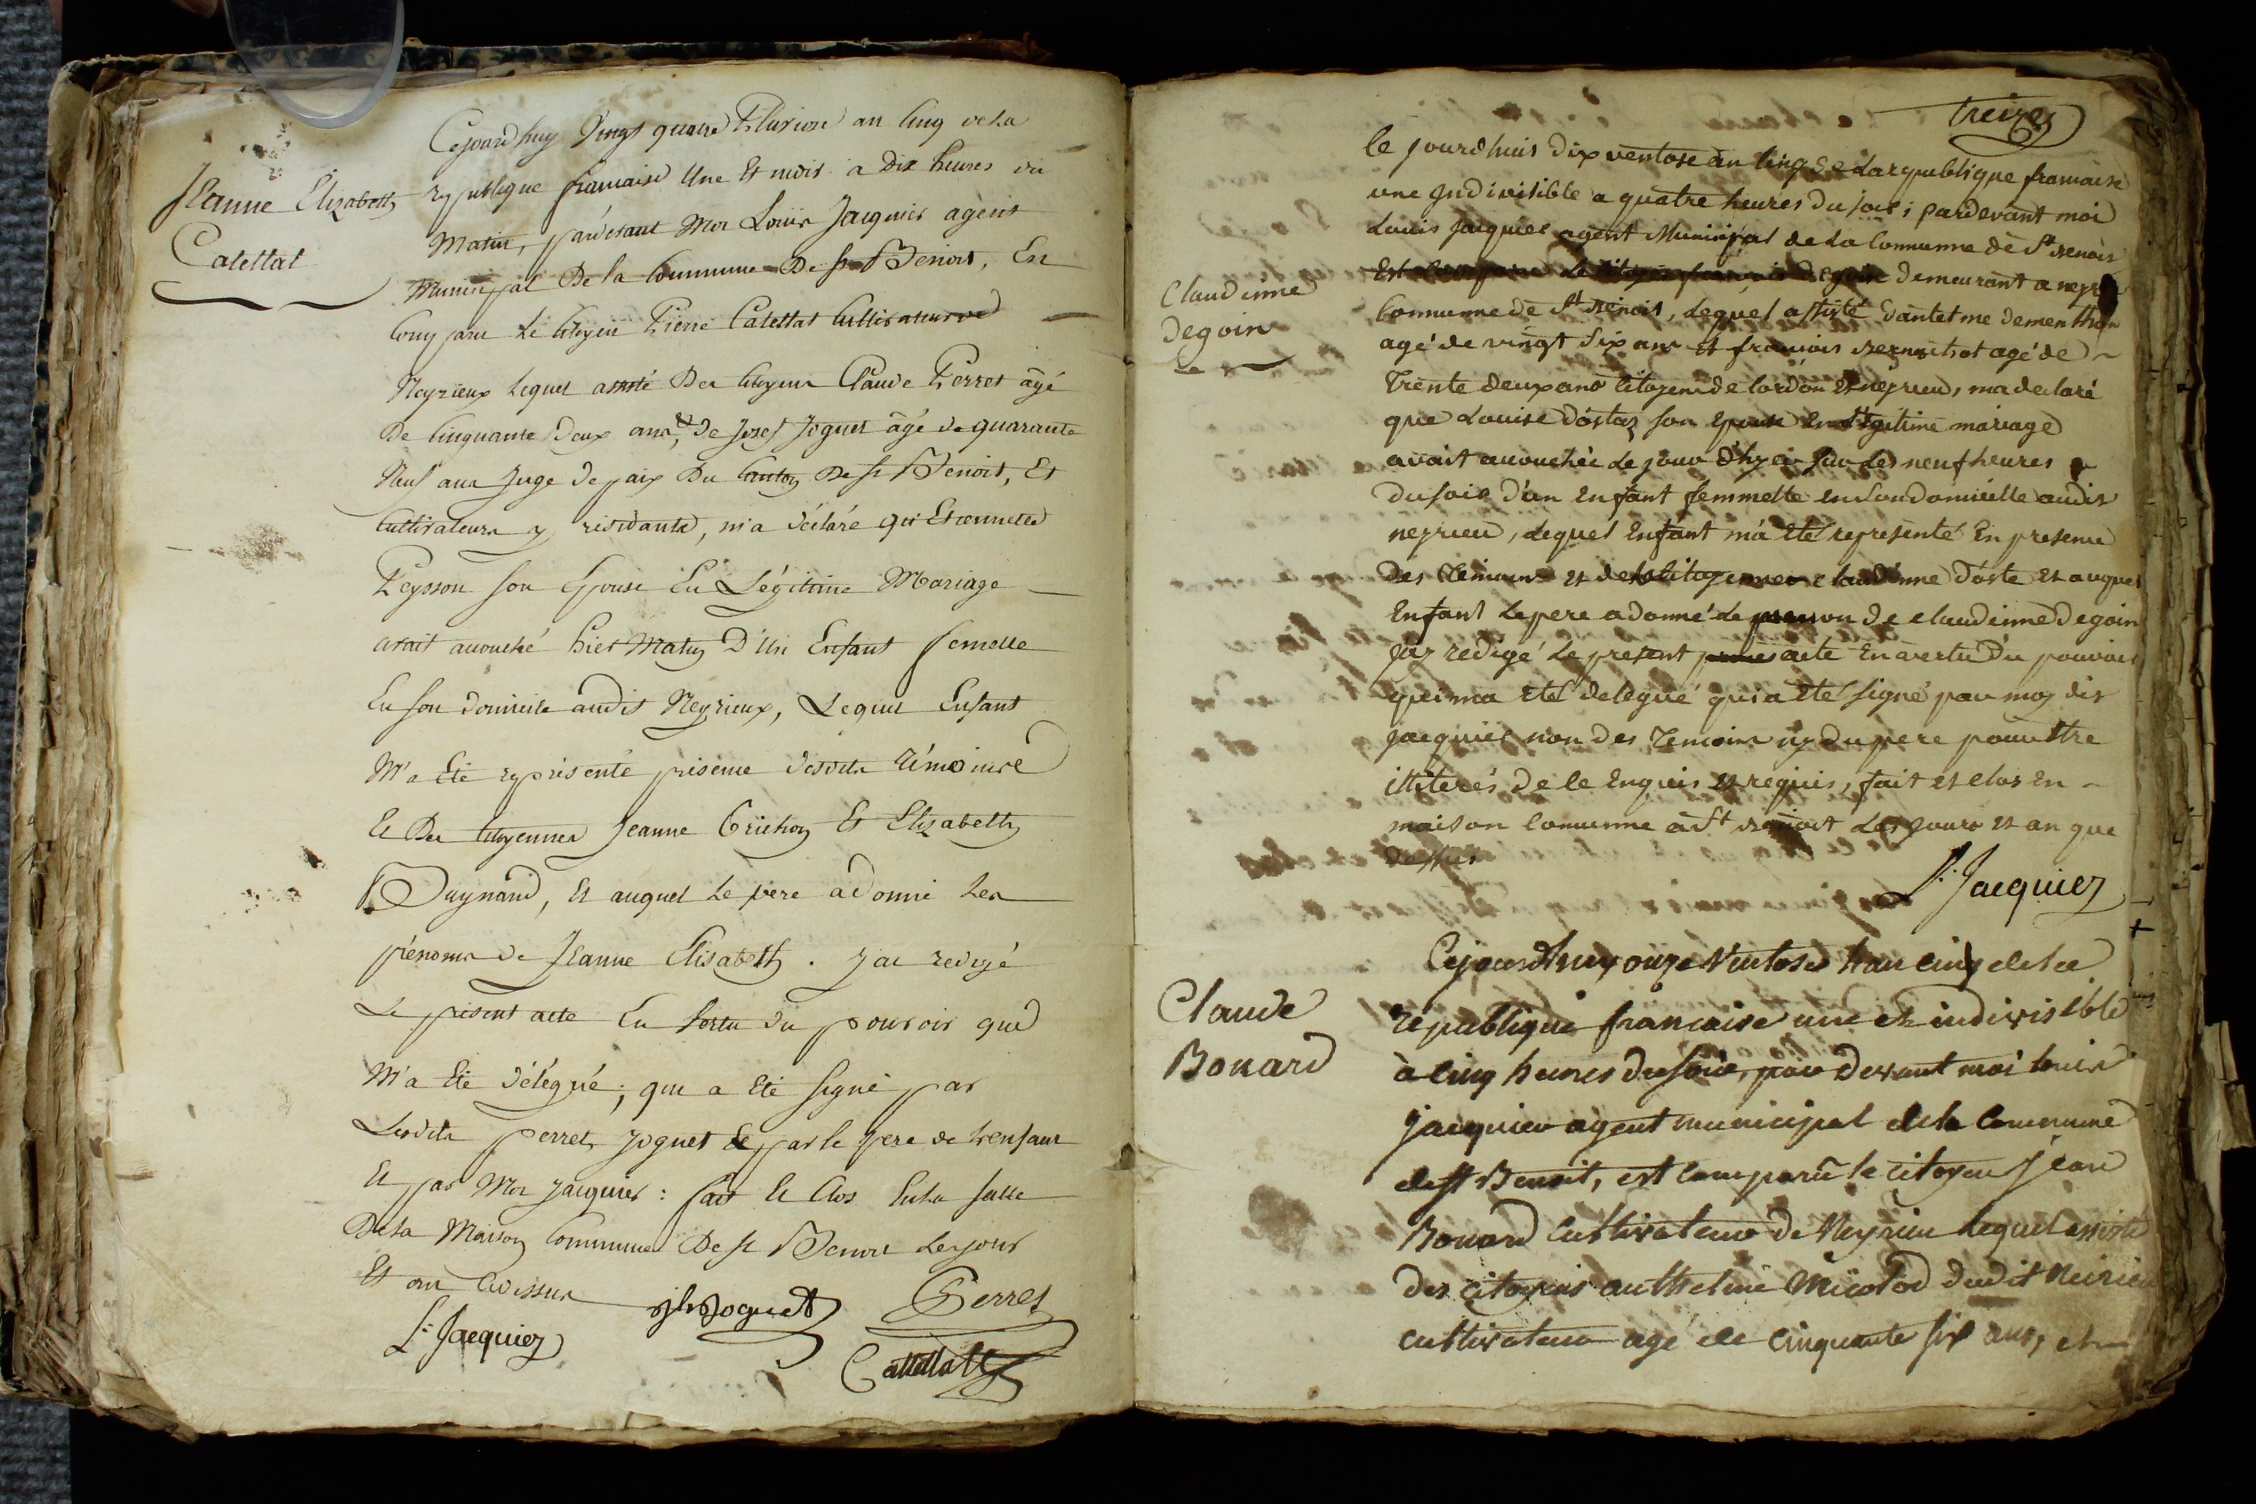 Jeanne Elizabeth
Catettat
Cejourdhuy Vingt quatre Pluviose an Cinq de La
republique francaise Une Et indiv. a Dix heures du
Matin, pardevant Moi Louis Jacquier agent
Municipal De la Commune De St Benoit, Est
Comparu Le Citoyen Pierre Catettat Cultivateur de
Neyrieux Lequel assisté Des Citoyens Claude Perret âgé
De Cinquante Deux ans, & de Josef Joguet âgé de quarante
Neuf ans Juge de paix Du Canton De St Benoit, Et
Cultivateurs y residants, m'a déclaré que Etiennette
Peysson son Epouse En Légitime Mariage
avait accouché hier Matin D'Un Enfant femelle
En son domicile audit Neyrieux, Lequel Enfant
M'a Eté représenté présence desdits Témoins
Et Des Citoyennes Jeanne Crichon Et Elizabeth
Duynand, Et auquel Le pere a donné Les
prénoms de Jeanne Elisabeth. J'ai redigé
Le present acte En Vertu du pouvoir qui
M'a Eté délégué; qui a Eté Signé par
Lesdits perret, Joguet & par le pere de L'enfant
Et par Moi Jacquier: fait Et Clos En la Salle
De la Maison Commune De St Benoit Les jour
Et an Cidessus
jh Joguet Perret
L. Jacquier
Catettatt
treize
Claudinne
degoin
Ce jourdhuis dix ventose an cinq de La republique francaise
une Indivisible a quatre heures du soir; pardevant moi
Louis Jacquier agent Municipal de La Commune de St Benoit
Est Comparu Le Citoyen francois degoin demeurant a neyrieu
Commune de St Benoit, Lequel assisté dantelme dementhon
agé de vingt Six ans et francois agé de
Trente deux ans Citoyens de Cordon et neyrieu, ma declaré
que Louise dostaz son Epouse En Legitime mariage
avait accouchée Le jour d'hyer sur Les neuf heures
du soir d'un Enfant femmelle en Son domicille audit
neyrieu, Lequel Enfant m'a Eté representé En presence
des Temoins et de la Citoyenne Claudinne doste Et auquel
Enfant Le pere a donné Le prenon de Claudinne degoin
Jay redigé Le present acte En vertu du pouvoir
qui ma Eté delegué qui a Eté signé par moy dit
Jacquier non des Temoins ny du pere pour Etre
illiterés de Ce Enquis et requis, fait et clos En
maison Comunne a St Benoit Les jour et an que
dessus
L. Jacquier
Claude
Bonard
Cejourdhuy onze Ventose l'an cinq de la
république francaise une et indivisible
à cinq heures du soir, par devant moi louis
jacquier agent municipal de la commune
de st Benoit, est comparu le citoyen jean
Bonard cultivateur de Neyrieu lequel assisté
des citoyens anthelme Micolod dudit Neirieu
cultivateur agé de cinquante six ans, et